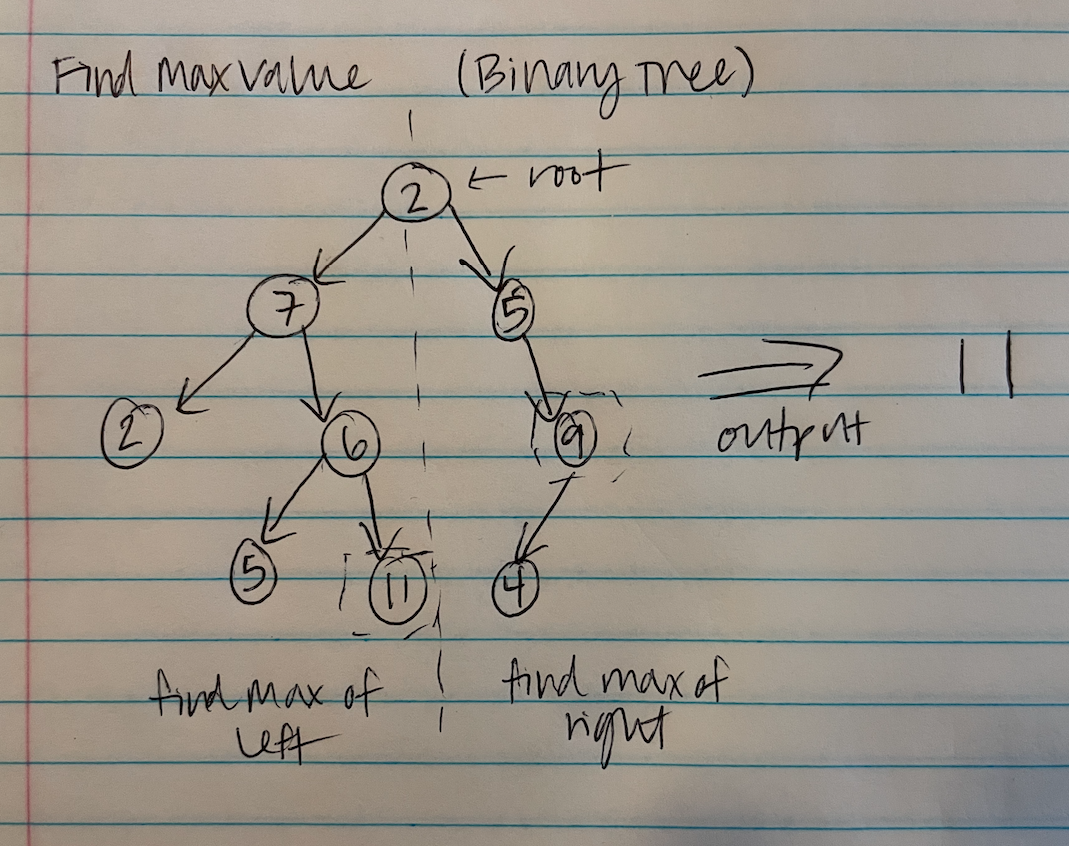 Find max value (Binary Tree)
2 ← root
7 5
2 6 9
5 11 4
output 11
find max of left
find max of right